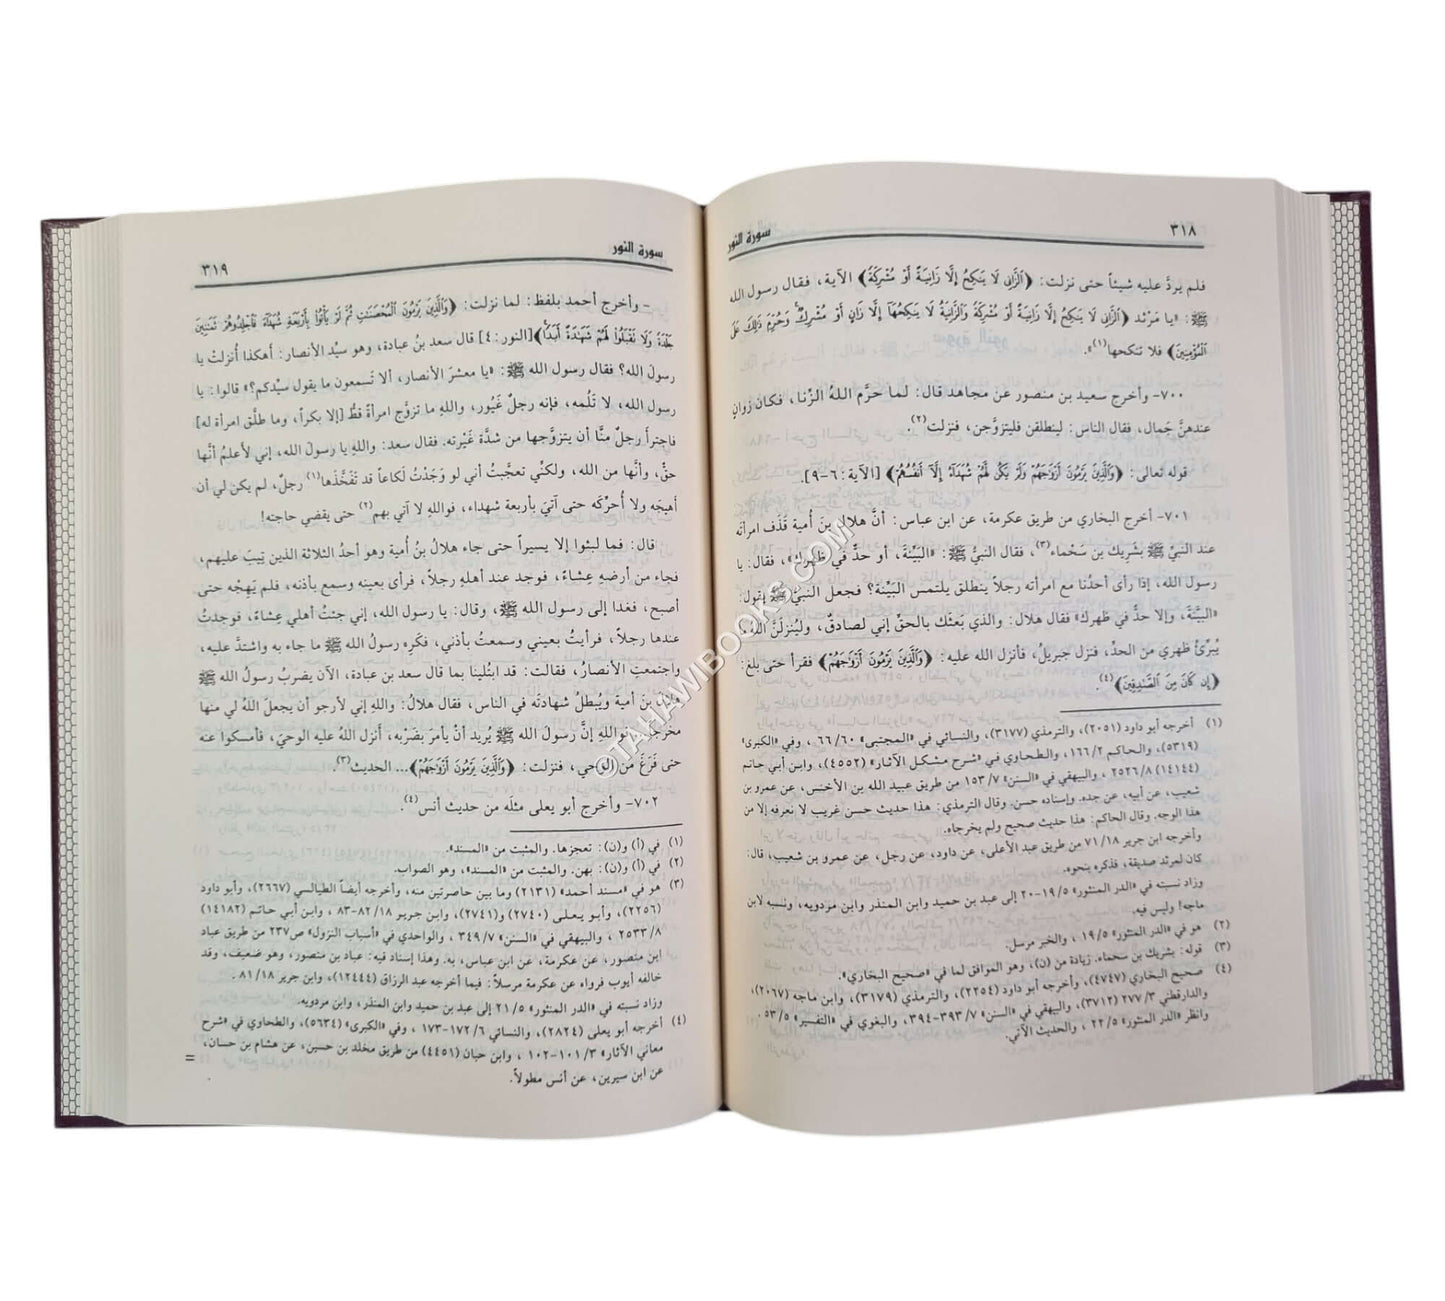 ٣١٨
سورة النور
فلم يردَّ عليه شيئاً حتى نزلت: ﴿الزَّانِي لَا يَنكِحُ إِلَّا زَانِيَةً أَوْ مُشْرِكَةً﴾ الآية، فقال رسول الله
ﷺ: «يا مَرْثد ﴿الزَّانِي لَا يَنكِحُ إِلَّا زَانِيَةً أَوْ مُشْرِكَةً وَالزَّانِيَةُ لَا يَنكِحُهَا إِلَّا زَانٍ أَوْ مُشْرِكٌ وَحُرِّمَ ذَلِكَ عَلَى
الْمُؤْمِنِينَ﴾ فلا تنكحها(١)».
٧٠٠- وأخرج سعيد بن منصور عن مجاهد قال: لما حرَّم اللهُ الزِّنا، فكان زَوانٍ
عندهنَّ جَمال، فقال الناس: لينطلقن فليتزوَّجن، فنزلت(٢).
قوله تعالى: ﴿وَالَّذِينَ يَرْمُونَ أَزْوَاجَهُمْ وَلَمْ يَكُن لَّهُمْ شُهَدَاءُ إِلَّا أَنفُسُهُمْ﴾ [الآية: ٦-٩].
٧٠١- أخرج البخاري من طريق عكرمة، عن ابن عباس: أنَّ هلالَ بنَ أُمية قَذَف امرأتَه
عند النبيِّ ﷺ بشَرِيك بن سَحْماء(٣)، فقال النبيُّ ﷺ: «البَيِّنةَ، أو حدٌّ في ظهرك»، فقال: يا
رسول الله، إذا رأى أحدُنا مع امرأته رجلاً ينطلق يلتمس البَيِّنة؟ فجعل النبيُّ ﷺ يقول:
«البَيِّنَةَ، وإلا حدٌّ في ظهرك» فقال هلال: والذي بَعثَك بالحقِّ إني لصادقٌ، وليُنزلَنَّ اللهُ ما
يُبرِّئُ ظهري من الحدِّ، فنزل جبريلُ، فأنزل الله عليه: ﴿وَالَّذِينَ يَرْمُونَ أَزْوَاجَهُمْ﴾ فقرأ حتى بلغ:
﴿إِن كَانَ مِنَ الصَّادِقِينَ﴾(٤).
(١) أخرجه أبو داود (٢٠٥١)، والترمذي (٣١٧٧)، والنسائي في «المجتبى» ٦٦/٦٠، وفي «الكبرى»
(٥٣١٩)، والحاكم ١٦٦/٢، والطحاوي في «شرح مشكل الآثار» (٤٥٥٢)، وابن أبي حاتم
٢٥٢٦/٨ (١٤١٤٤)، والبيهقي في «السنن» ١٥٣/٧ من طريق عبيد الله بن الأخنس، عن عمرو بن
شعيب، عن أبيه، عن جده. وإسناده حسن. وقال الترمذي: هذا حديث حسن غريب لا نعرفه إلا من
هذا الوجه. وقال الحاكم: هذا حديث صحيح ولم يخرجاه.
وأخرجه ابن جرير ٧١/١٨ من طريق عبد الأعلى، عن داود، عن رجل، عن عمرو بن شعيب، قال:
كان لمرثد صديقة، فذكره بنحوه.
وزاد نسبته في «الدر المنثور» ١٩/٥-٢٠ إلى عبد بن حميد وابن المنذر وابن مردويه، ونسبه لابن
ماجه! وليس فيه.
(٢) هو في «الدر المنثور» ١٩/٥، والخبر مرسل.
(٣) قوله: بشريك بن سحماء. زيادة من (ن)، وهو الموافق لما في «صحيح البخاري».
(٤) صحيح البخاري (٤٧٤٧)، وأخرجه أبو داود (٢٢٥٤)، والترمذي (٣١٧٩)، وابن ماجه (٢٠٦٧)،
والدارقطني ٢٧٧/٣ (٣٧١٢)، والبيهقي في «السنن» ٣٩٣/٧-٣٩٤، والبغوي في «التفسير» ٥٣/٥.
وانظر «الدر المنثور» ٢٢/٥، والحديث الآتي.
سورة النور
٣١٩
- وأخرج أحمد بلفظ: لما نزلت: ﴿وَالَّذِينَ يَرْمُونَ الْمُحْصَنَاتِ ثُمَّ لَمْ يَأْتُوا بِأَرْبَعَةِ شُهَدَاءَ فَاجْلِدُوهُمْ ثَمَانِينَ
جَلْدَةً وَلَا تَقْبَلُوا لَهُمْ شَهَادَةً أَبَدًا﴾ [النور: ٤] قال سعد بنُ عبادة، وهو سيِّد الأنصار: أهكذا أُنزلتْ يا
رسولَ الله؟ فقال رسول الله ﷺ: «يا معشرَ الأنصار، ألا تَسمعون ما يقول سيِّدكم؟» قالوا: يا
رسول الله، لا تَلُمه، فإنه رجلٌ غَيُور، واللهِ ما تزوَّج امرأةً قطُّ [إلا بكراً، وما طلَّق امرأة له]
فاجترأَ رجلٌ منَّا أن يتزوَّجها من شدَّة غَيْرته. فقال سعد: واللهِ يا رسولَ الله، إني لأعلمُ أنَّها
حقٌّ، وأنَّها من الله، ولكنِّي تعجَّبتُ أني لو وَجَدْتُ لَكَاعاً قد تَفَخَّذَها(١) رجلٌ، لم يكن لي أن
أهيجَه ولا أُحرِّكَه حتى آتيَ بأربعة شهداء، فواللهِ لا آتي بهم(٢) حتى يقضي حاجته!
قال: فما لبثوا إلا يسيراً حتى جاء هلالُ بنُ أُمية وهو أحدُ الثلاثة الذين تِيبَ عليهم،
فجاء من أرضهِ عِشاءً، فوجد عند أهلهِ رجلاً، فرأى بعينه وسمع بأذنه، فلم يَهِجْه حتى
أصبح، فغدا إلى رسول الله ﷺ، وقال: يا رسول الله، إني جئتُ أهلي عِشاءً، فوجدتُ
عندها رجلاً، فرأيتُ بعيني وسمعتُ بأذني، فكَرِه رسولُ الله ﷺ ما جاء به واشتدَّ عليه،
واجتمعتِ الأنصارُ، فقالت: قد ابتُلينا بما قال سعد بن عبادة، الآن يضربُ رسولُ الله ﷺ
هلالَ بن أمية ويُبطلُ شهادتَه في الناس، فقال هلالٌ: واللهِ إني لأرجو أن يجعلَ اللهُ لي منها
مخرجاً، فواللهِ إنَّ رسولَ الله ﷺ يُريد أنْ يأمرَ بضَرْبه، أَنزل اللهُ عليه الوحيَ، فأمسكوا عنه
حتى فَرَغَ من الوحي، فنزلت: ﴿وَالَّذِينَ يَرْمُونَ أَزْوَاجَهُمْ﴾... الحديث(٣).
٧٠٢- وأخرج أبو يعلى مثلَه من حديث أنس(٤).
(١) في (أ) و(ن): تعجزها. والمثبت من «المسند».
(٢) في (أ) و(ن): بهن. والمثبت من «المسند»، وهو الصواب.
(٣) هو في «مسند أحمد» (٢١٣١) وما بين حاصرتين منه، وأخرجه أيضاً الطيالسي (٢٦٦٧)، وأبو داود
(٢٢٥٦)، وأبو يعلى (٢٧٤٠) و(٢٧٤١)، وابن جرير ٨٢/١٨-٨٣، وابن أبي حاتم (١٤١٨٢)
٢٥٣٣/٨، والبيهقي في «السنن» ٣٤٩/٧، والواحدي في «أسباب النزول» ص٢٣٧ من طريق عباد
ابن منصور، عن عكرمة، عن ابن عباس، به. وهذا إسناد فيه: عباد بن منصور، وهو ضعيف، وقد
خالفه أيوب فرواه عن عكرمة مرسلاً: فيما أخرجه عبد الرزاق (١٢٤٤٤)، وابن جرير ٨١/١٨.
وزاد نسبته في «الدر المنثور» ٢١/٥ إلى عبد بن حميد وابن المنذر، وابن مردويه.
(٤) أخرجه أبو يعلى (٢٨٢٤)، والنسائي ١٧٢/٦-١٧٣، وفي «الكبرى» (٥٦٣٤)، والطحاوي في «شرح
معاني الآثار» ١٠١/٣-١٠٢، وابن حبان (٤٤٥١) من طريق مخلد بن حسين، عن هشام بن حسان،
عن ابن سيرين، عن أنس مطولاً.
=
©TAHAWIBOOKS.COM